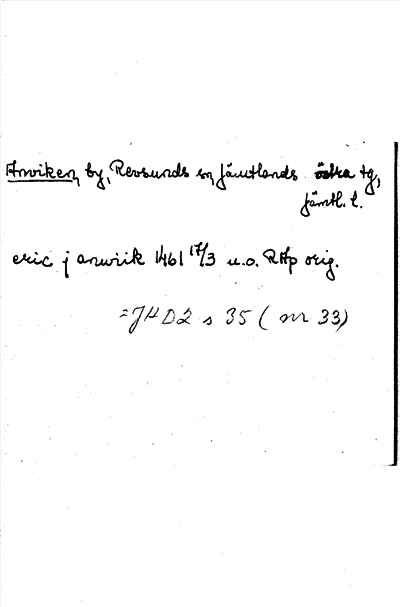 Anviken, by, Revsunds sn, Jämtlands östra tg,
Jämtl. l.
eric j anwiik 1461 17/3 u.o. RAp orig.
=JHD2 s 35 (nr 33)